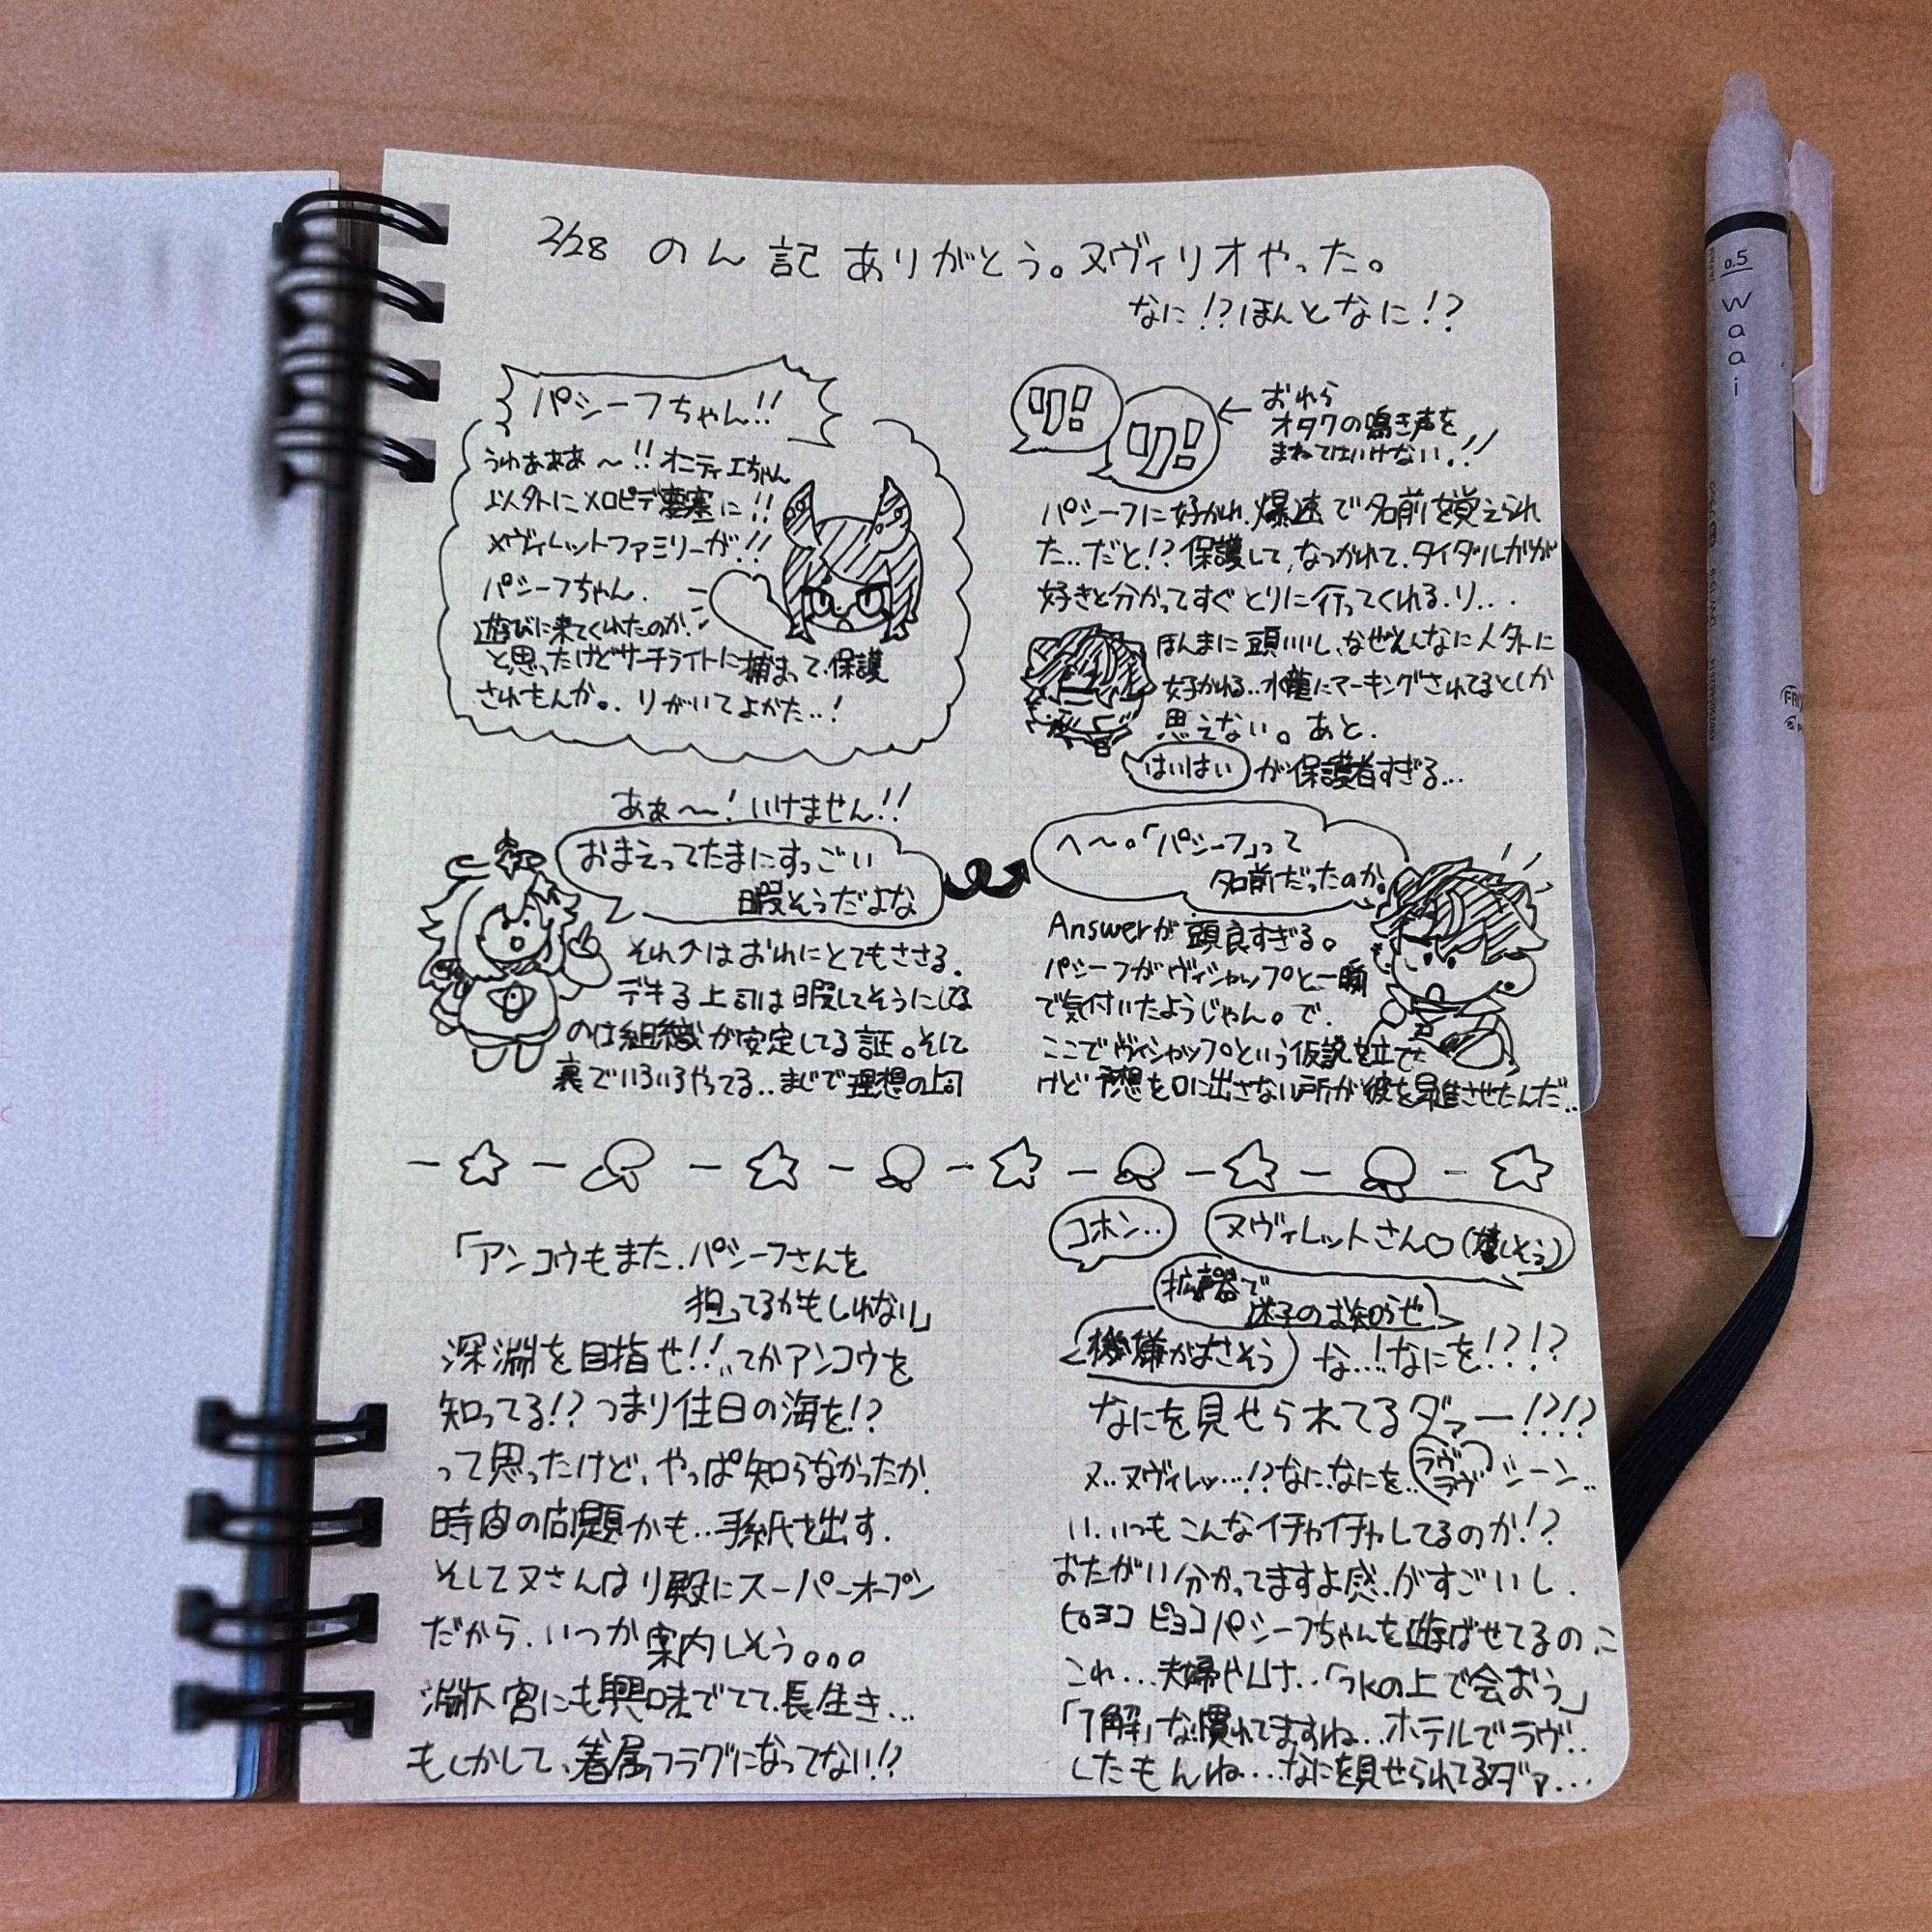 2/28 のん記 ありがとう。ヌヴィリオやった。
なに!?ほんとなに!?
パシーフちゃん!!
うわぁああ〜!!オニティエちゃん
以外にメロピデ要塞に!!
ヌヴィレットファミリーが!!
パシーフちゃん.
遊びに来てくれたのか!
と思ったけどサーチライトに捕まって、保護
されもんか。. リがいてよかた..!
リ!
リ!
← おれら
オタクの鳴き声を
まねてはいけない.!!
パシーフに好かれ.爆速で名前を覚えられ
た..だと!?保護して、なつかれて.タイダルガが
好きと分かってすぐとりに行ってくれる.リ...
ほんまに頭いいし、なぜそんなに人外に
好かれる..水龍にマーキングされてるとしか
思えない。あと.
はいはい が保護者すぎる...
あぁ〜〜!いけません!!
おまえってたまにすっごい
暇そうだよな
それへはおれにとてもささる.
デキる上司は暇してそうにしてる
のは組織が安定してる証。そして
裏でいろいろやってる..まじで理想の上司
へ〜。「パシーフ」って
名前だったのか。
Answerが頭良すぎる。
パシーフがヴィシャップと一瞬
で気付いたようじゃん。で.
ここでヴィシャップという仮説を立てた
けど予想を口に出さない所が彼を昇進させたんだ..
「アンコウもまた.パシーフさんを
担ってるかもしれない」
深淵を目指せ!!..てかアンコウを
知ってる!?つまり往日の海を!?
って思ったけど、やっぱ知らなかったか.
時宙の問題かも..手紙を出す.
そしてヌさんはリ殿にスーパーオープン
だから.いつか案内しそう。。。
淵下宮にも興味でてて.長生き...
もしかして、眷属フラグになってない!?
コホン..
ヌヴィレットさん♡(嬉しそう)
拡声器で
迷子のお知らせ
機嫌がよさそう
な...!なにを!?!?
なにを見せられてるダァー!?!?
ヌ..ヌヴィレッ...!?なに.なにを..ラヴラヴシーン..
い.いつもこんなイチャイチャしてるのか!?
おたがい分かってますよ感.がすごいし.
ピョコ ピョコ パシーフちゃんを遊ばせてるの.こ
これ...夫婦やんけ..「水の上で会おう」
「了解」な.慣れてますね..ホテルでラヴ..
したもんね...なにを見せられてるダァ...
0.5
waai